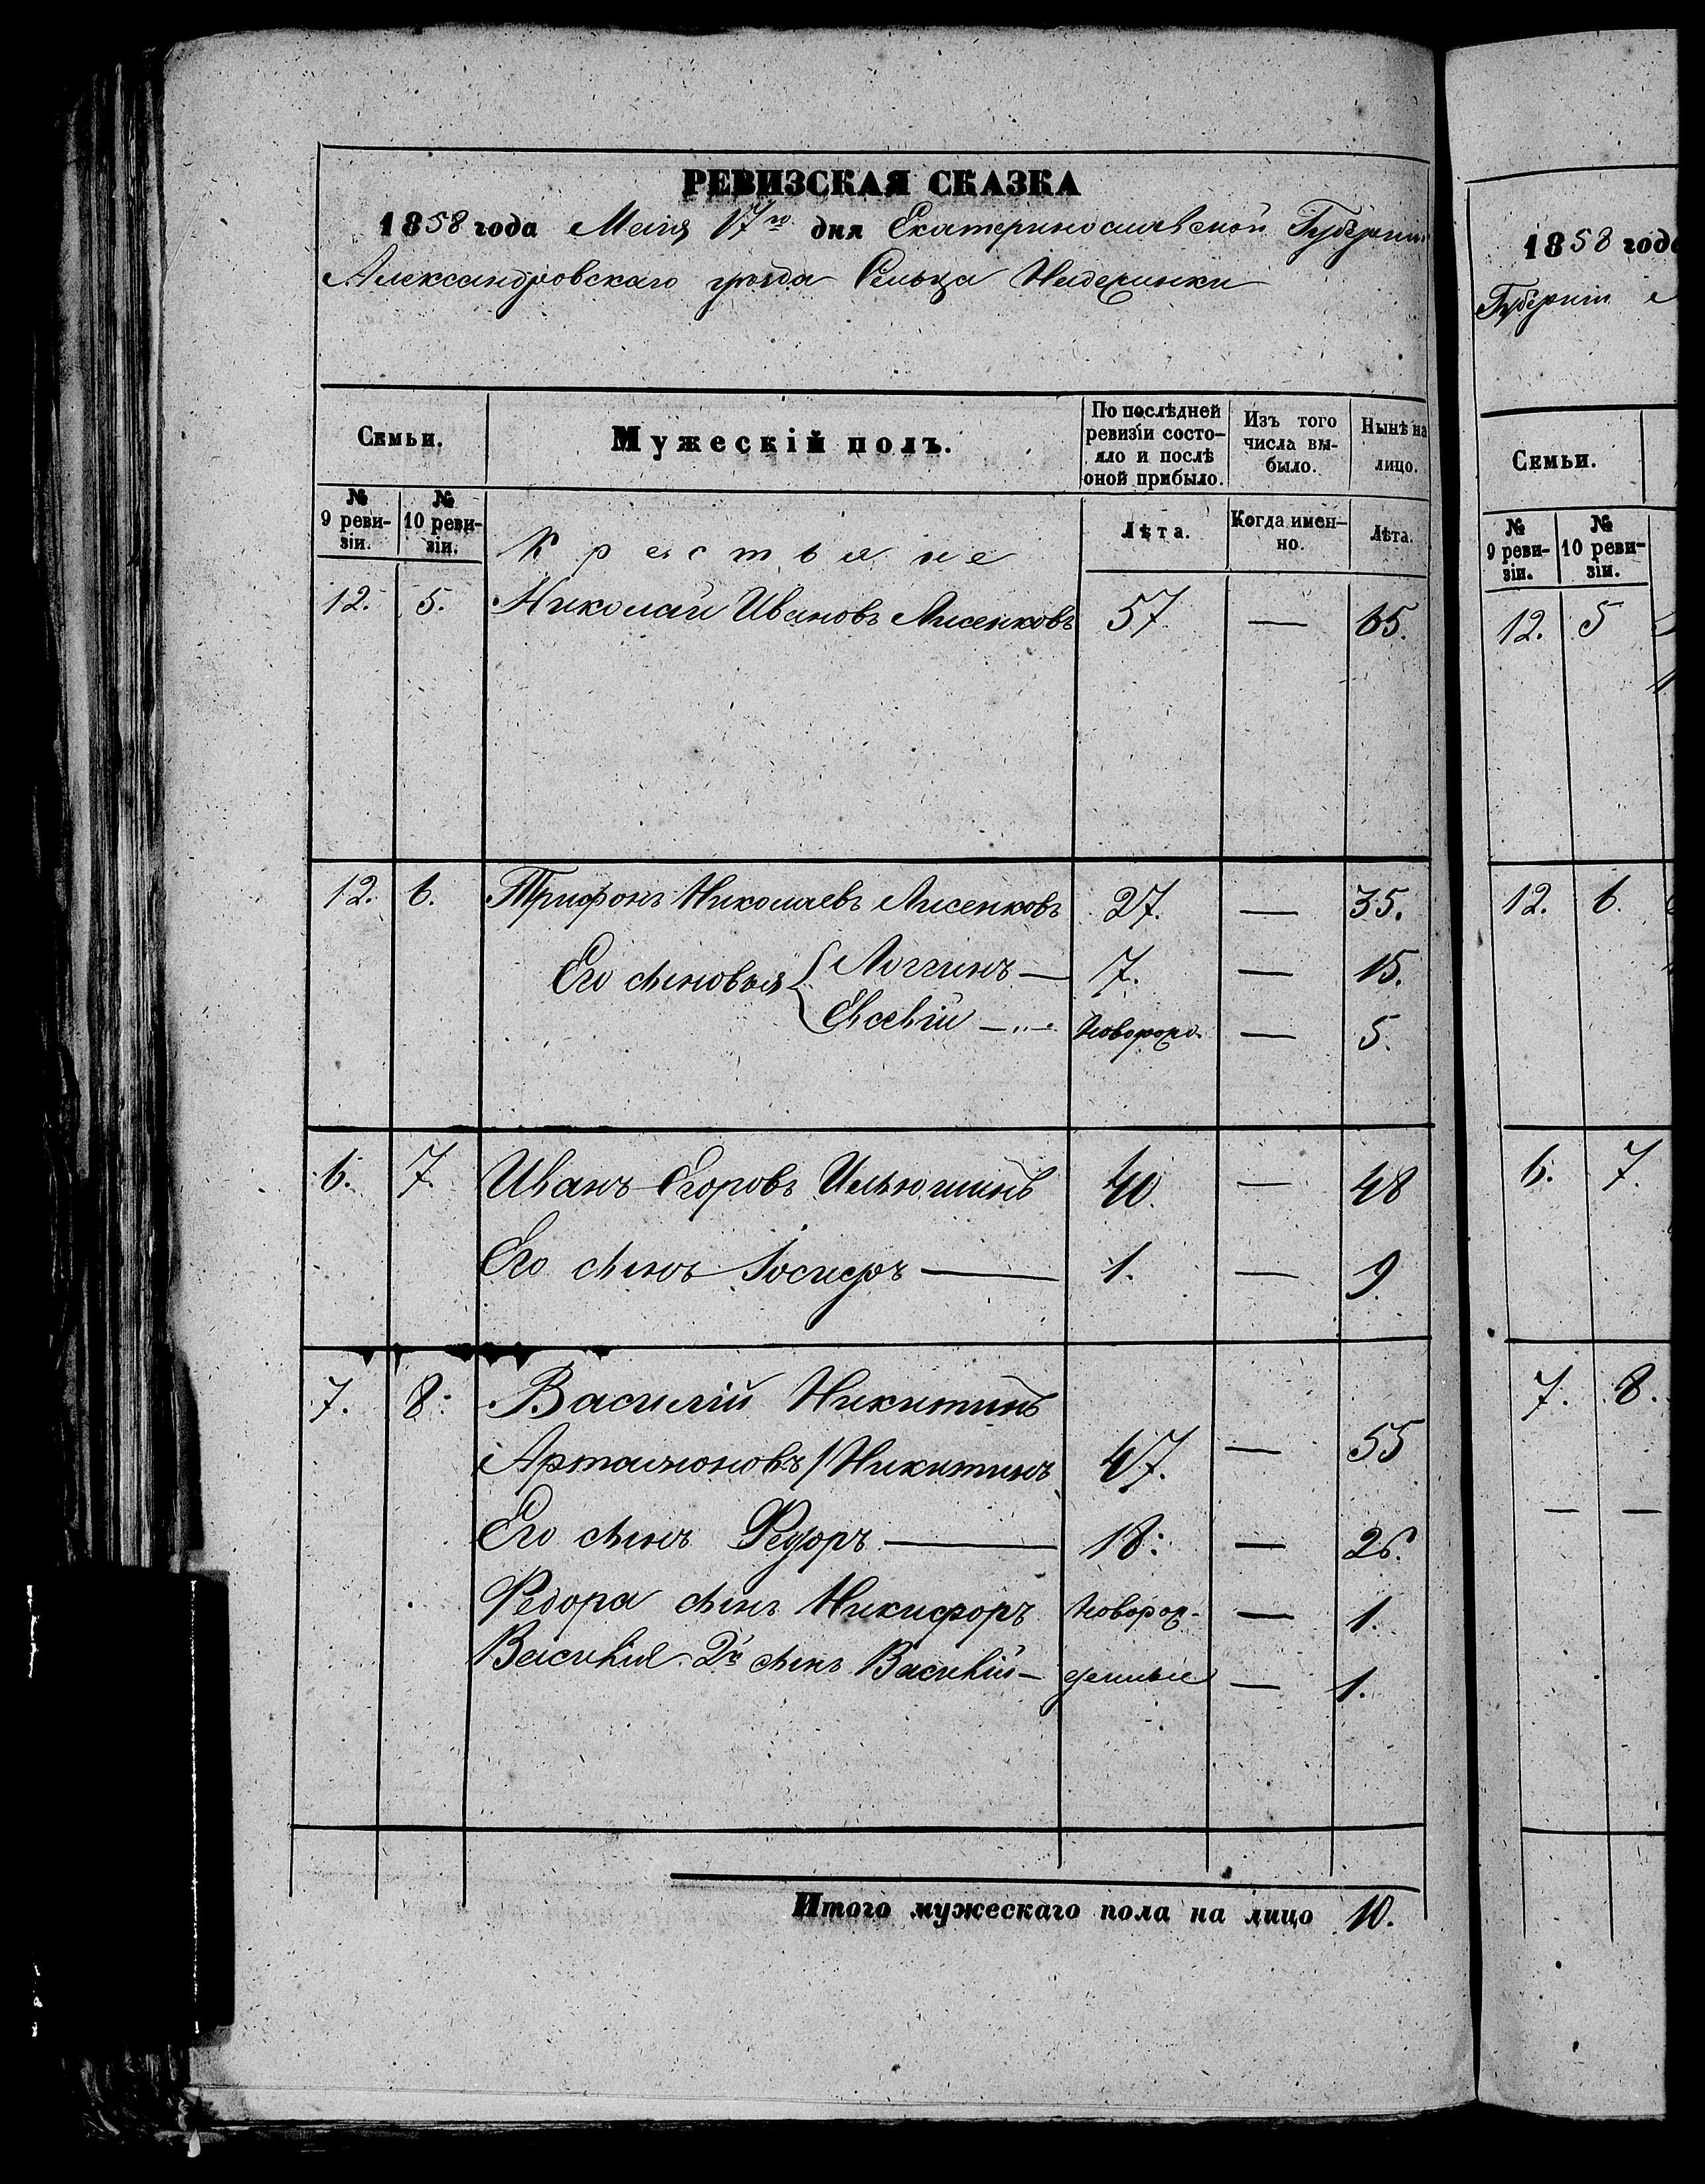 РЕВИЗСКАЯ СКАЗКА
1858 года Маія 17го дня Екатеринославской Губерніи
Александровскаго уѣзда Сельца
Семьи.
Мужескій полъ.
По послѣдней ревизіи состояло и послѣ оной прибыло.
Изъ того числа выбыло.
Нынѣ на лицо.
№ 9 ревизіи.
№ 10 ревизіи.
Крестьяне
Лѣта.
Когда именно.
Лѣта.
12. 5. Николай Ивановъ Лисенковъ 57 — 65.
12. 6. Трифонъ Николаевъ Лисенковъ 27. — 35.
Его сыновья { Логгинъ — 7. — 15.
Евсевій —〃— Новорож. — 5.
6. 7. Иванъ Егоровъ Ильюшинъ 40. — 48
Его сынъ Іосифъ — 1. — 9.
7. 8. Василій Никитинъ
Артамоновъ/Никитинъ 47. — 55
Его сынъ Федоръ — 18. — 26.
Федора сынъ Никифоръ Новорож- — 1.
Василія 2й сынъ Василій — денные — 1.
Итого мужескаго пола на лицо 10.
1858 года
Губерніи
Семьи.
№ 9 ревизіи.
№ 10 ревизіи.
12. 5
12. 6.
6. 7.
7. 8.
— —